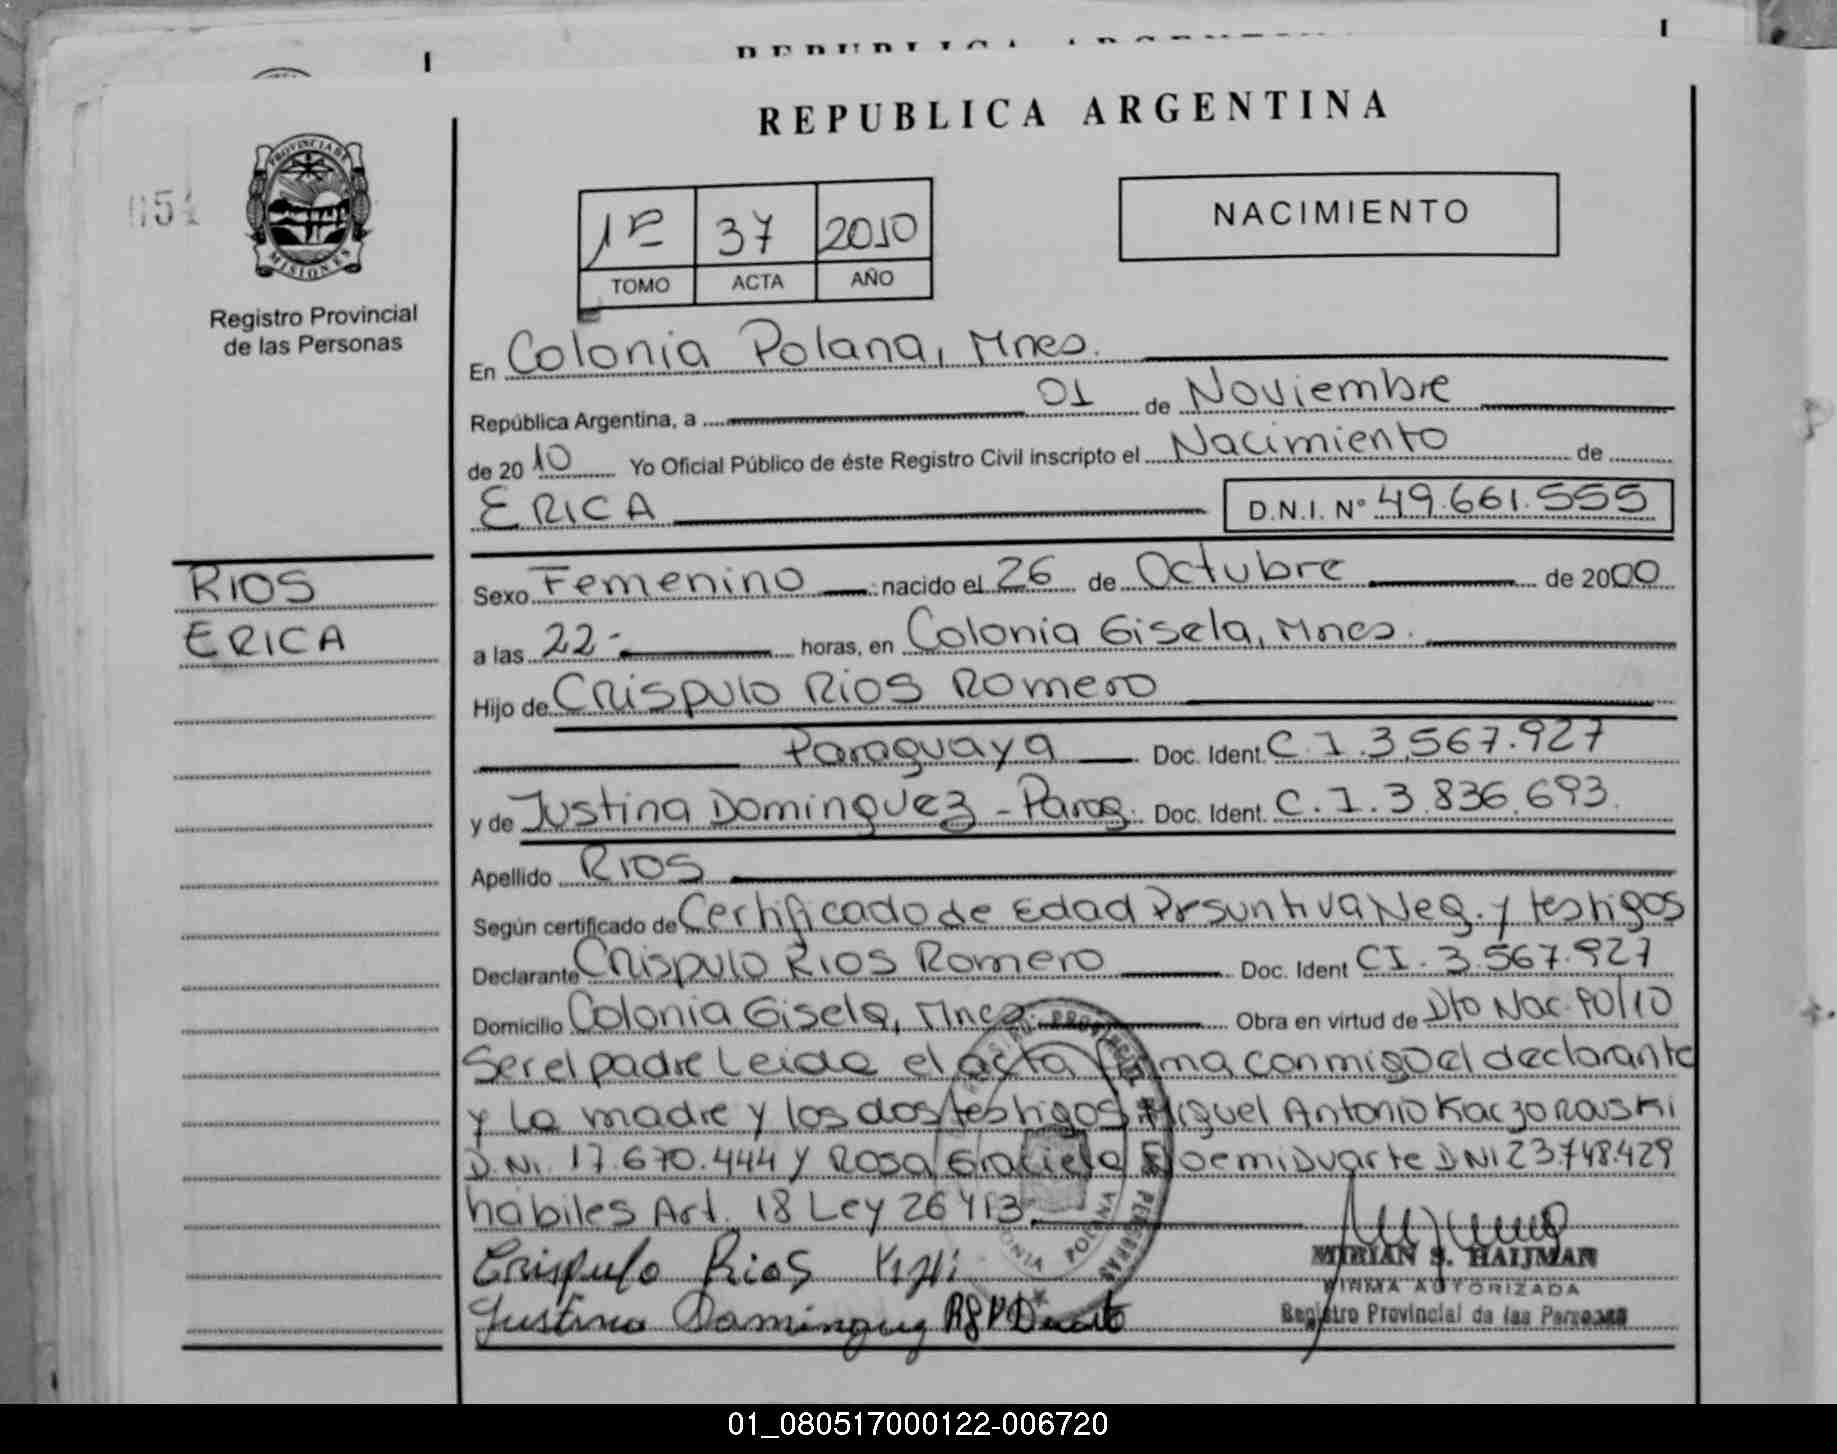 REPUBLICA ARGENTINA
PROVINCIA DE
MISIONES
Registro Provincial
de las Personas
1º 37 2010
TOMO ACTA AÑO
NACIMIENTO
En Colonia Polana, Mnes.
República Argentina, a 01 de Noviembre
de 2010 Yo Oficial Público de éste Registro Civil inscripto el Nacimiento de
ERICA D.N.I. Nº 49.661.555
RIOS
ERICA
Sexo Femenino nacido el 26 de Octubre de 2000
a las 22- horas, en Colonia Gisela, Mnes.
Hijo de Crispulo Rios Romero
Paraguaya Doc. Ident. C.I. 3.567.927
y de Justina Dominguez - Parag. Doc. Ident. C.I. 3.836.693.
Apellido Rios
Según certificado de Certificado de Edad Prsuntiva Neg. y testigos
Declarante Crispulo Rios Romero Doc. Ident CI. 3.567.927
Domicilio Colonia Gisela, Mnes. Obra en virtud de Dto Nac. 90/10
Ser el padre Leida el acta firma conmigo el declarante
y la madre y los dos testigos Miguel Antonio Kaczorouski
D.Ni. 17.670.444 y Rosa Graciela Noemi Duarte DNI 23.748.429
habiles Art. 18 Ley 26413
Crispulo Rios
Justina Dominguez
MIRIAN S. HAIJMAN
FIRMA AUTORIZADA
Registro Provincial de las Personas
01_080517000122-006720